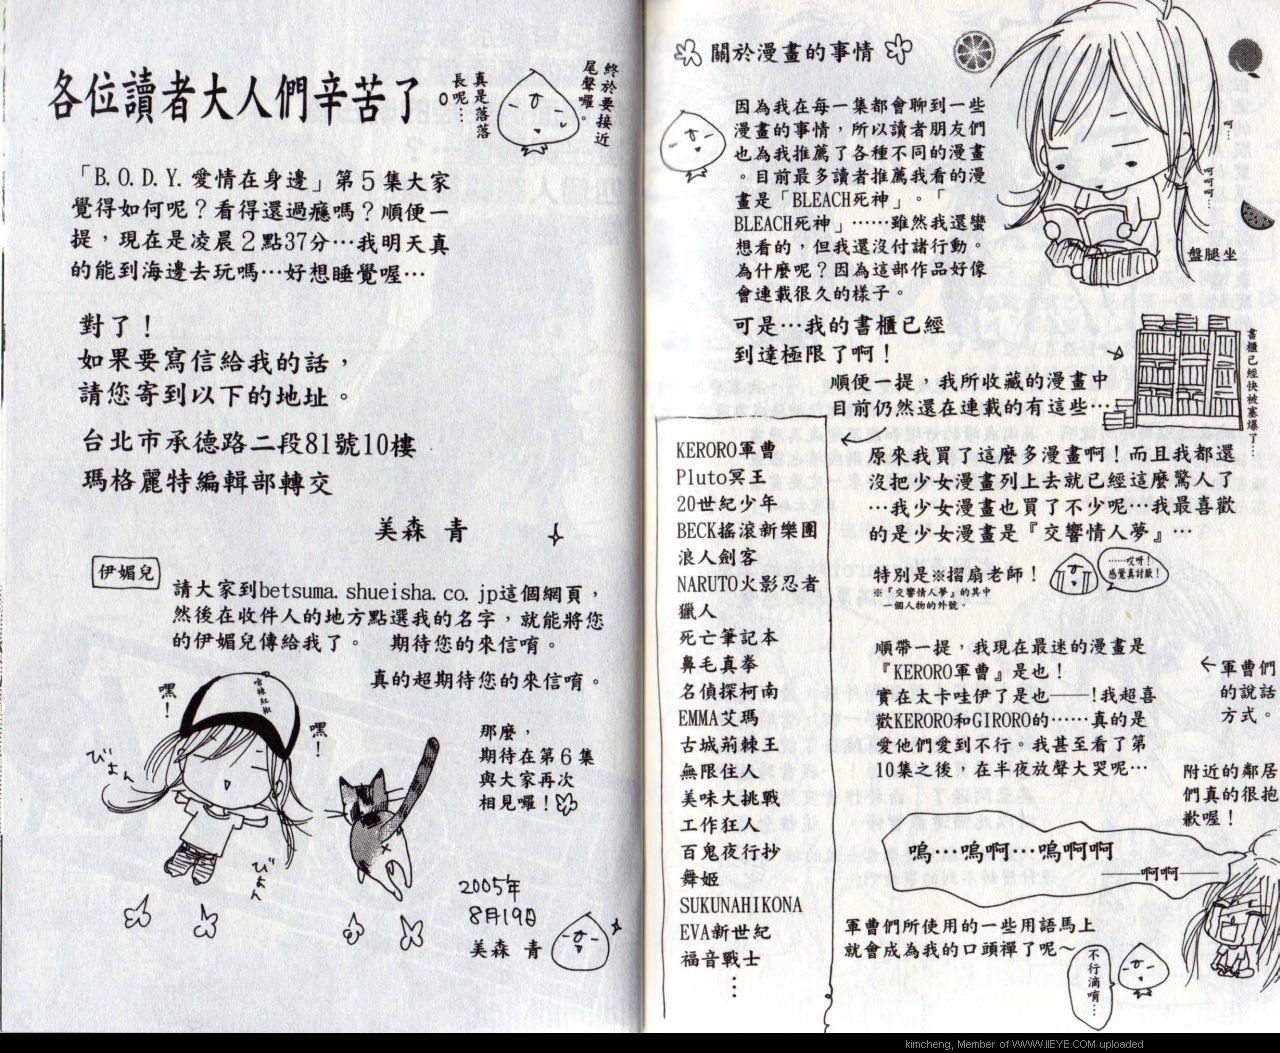 關於漫畫的事情
因為我在每一集都會聊到一些
漫畫的事情，所以讀者朋友們
也為我推薦了各種不同的漫畫
。目前最多讀者推薦我看的漫
畫是「BLEACH死神」。「
BLEACH死神」……雖然我還蠻
想看的，但我還沒付諸行動。
為什麼呢？因為這部作品好像
會連載很久的樣子。
呵…
呵呵呵…
盤腿坐
可是…我的書櫃已經
到達極限了啊！
書櫃已經快被塞爆了…
順便一提，我所收藏的漫畫中
目前仍然還在連載的有這些…
KERORO軍曹
Pluto冥王
20世紀少年
BECK搖滾新樂團
浪人劍客
NARUTO火影忍者
獵人
死亡筆記本
鼻毛真拳
名偵探柯南
EMMA艾瑪
古城荊棘王
無限住人
美味大挑戰
工作狂人
百鬼夜行抄
舞姬
SUKUNAHIKONA
EVA新世紀
福音戰士
⋮
原來我買了這麼多漫畫啊！而且我都還
沒把少女漫畫列上去就已經這麼驚人了
…我少女漫畫也買了不少呢…我最喜歡
的是少女漫畫是『交響情人夢』…
特別是※摺扇老師！
※『交響情人夢』的其中
一個人物的外號。
……哎呀！
感覺真討厭！
順帶一提，我現在最迷的漫畫是
『KERORO軍曹』是也！
實在太卡哇伊了是也——！我超喜
歡KERORO和GIRORO的……真的是
愛他們愛到不行。我甚至看了第
10集之後，在半夜放聲大哭呢…
←軍曹們
的說話
方式。
附近的鄰居
們真的很抱
歉喔！
嗚…嗚啊…嗚啊啊
啊啊
軍曹們所使用的一些用語馬上
就會成為我的口頭禪了呢～
不行滴唷…
各位讀者大人們辛苦了
終於要接近
尾聲囉。
真是落落
長呢…
「B.O.D.Y.愛情在身邊」第５集大家
覺得如何呢？看得還過癮嗎？順便一
提，現在是凌晨２點37分…我明天真
的能到海邊去玩嗎…好想睡覺喔…
對了！
如果要寫信給我的話，
請您寄到以下的地址。
台北市承德路二段81號10樓
瑪格麗特編輯部轉交
美森 青
伊媚兒
請大家到betsuma.shueisha.co.jp這個網頁，
然後在收件人的地方點選我的名字，就能將您
的伊媚兒傳給我了。 期待您的來信唷。
真的超期待您的來信唷。
嘿！
嘿！
びょん
びょん
那麼，
期待在第６集
與大家再次
相見囉！
2005年
8月19日
美森 青
kimcheng, Member of WWW.IIEYE.COM uploaded